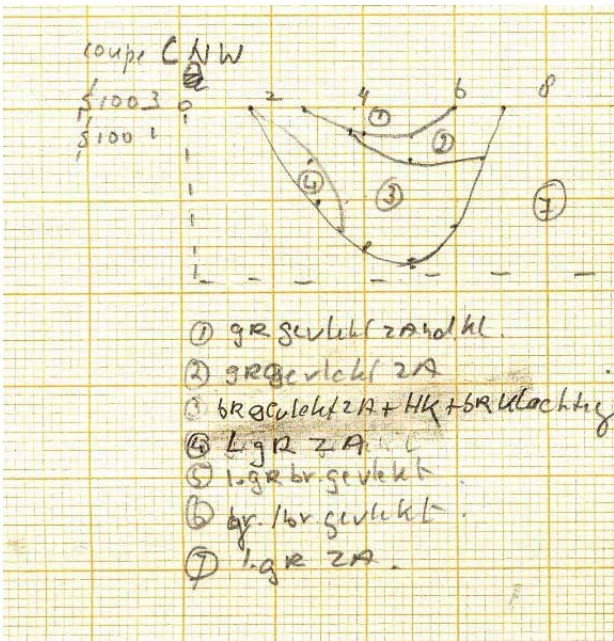 coupe CNW
2 4 6 8
S1003 0
S1001
①
②
④ ③ ⑦
① gR gevlekt zAndkl.
② gR gevlekt zA
③ bR gevlekt zA + HK + bR klachtig
④ L gR zA
⑤ l.gR br. gevlekt.
⑥ gr./br. gevlekt.
⑦ l.gR zA.